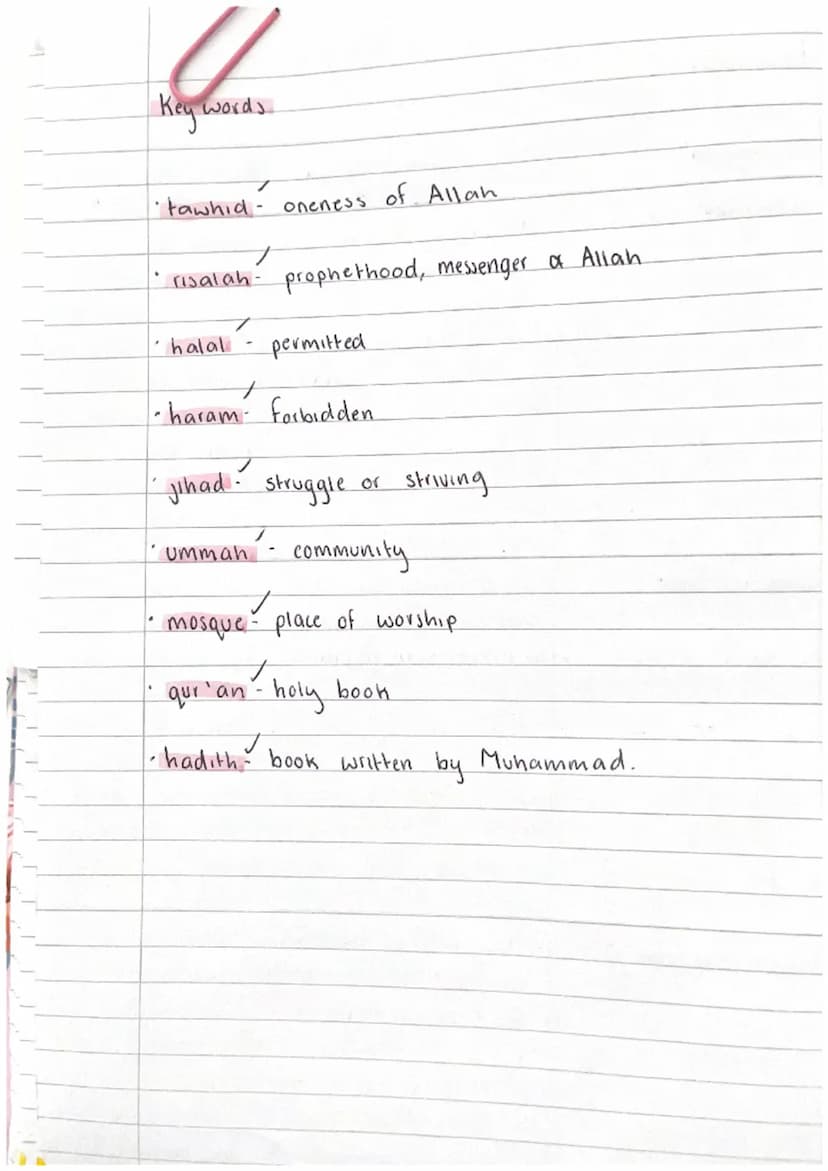 Key words
· tawhid - oneness of Allah
· risalah - prophethood, messenger of Allah
· halal - permitted
· haram - forbidden
· jihad - struggle or striving
· ummah - community
· mosque - place of worship
· qur'an - holy book
· hadith - book written by Muhammad.